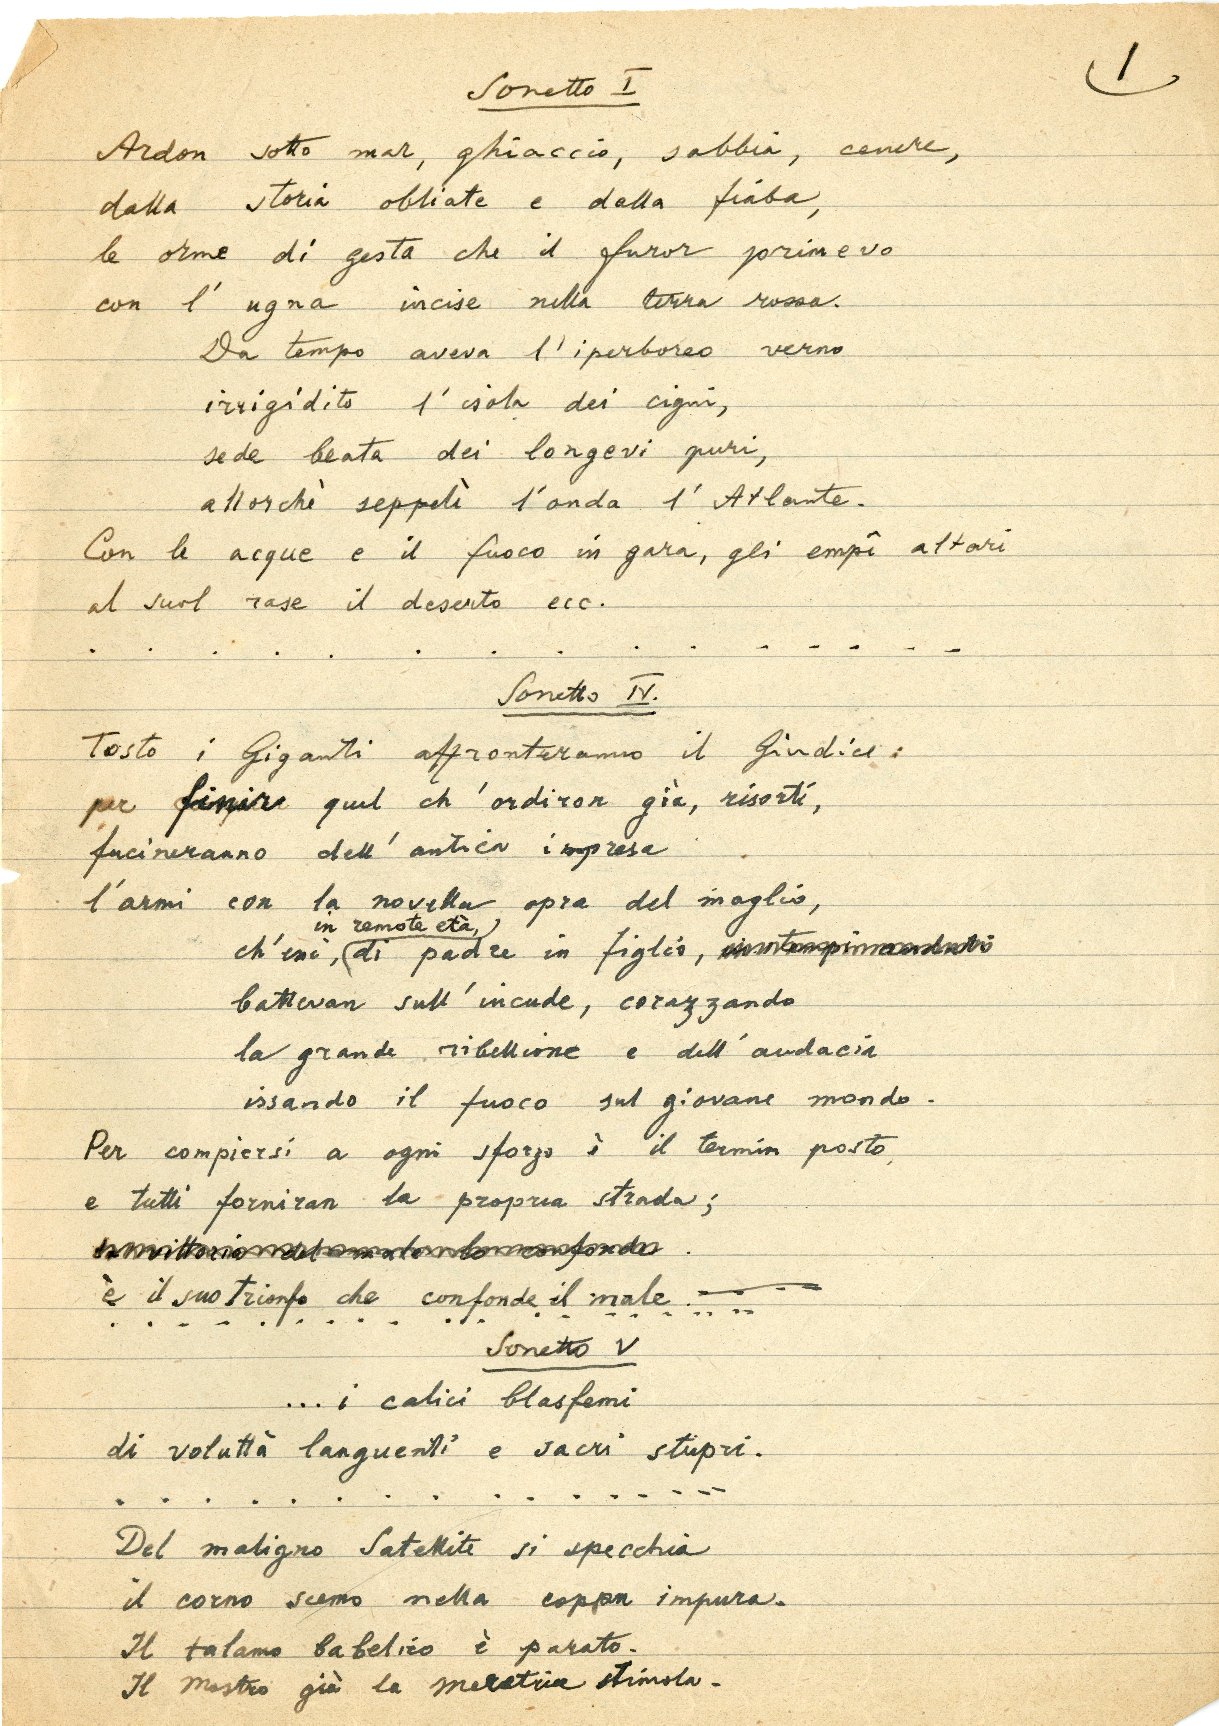 1
Sonetto I
Ardon sotto mar, ghiaccio, sabbia, cenere,
dalla storia obliate e dalla fiaba,
le orme di gesta che il furor primevo
con l'ugna incise nella terra rossa.
Da tempo aveva l'iperboreo verno
irrigidito l'isola dei cigni,
sede beata dei longevi puri,
allorchè seppelì l'onda l'Atlante.
Con le acque e il fuoco in gara, gli empî altari
al suol rase il deserto ecc.
. . . . . . . . . . . . . . . .
Sonetto IV.
Tosto i Giganti affronteranno il Giudice:
per finir quel ch'ordiron già, risorti,
fucineranno dell'antica impresa
l'armi con la novella opra del maglio,
in remote età,
ch'essi, (di padre in figlio,
battevan sull'incude, corazzando
la grande ribellione e dell'audacia
issando il fuoco sul giovane mondo.
Per compiersi a ogni sforzo è il termin posto
e tutti forniran la propria strada;
è il suo trionfo che confonde il male.
. . . . . . . . . . . . . . . .
Sonetto V
... i calici blasfemi
di voluttà languenti e sacri stupri.
. . . . . . . . . . . . . . . .
Del maligno Satellite si specchia
il corno scemo nella coppa impura.
Il talamo babelico è parato.
Il Mostro già la meretrice stimola.